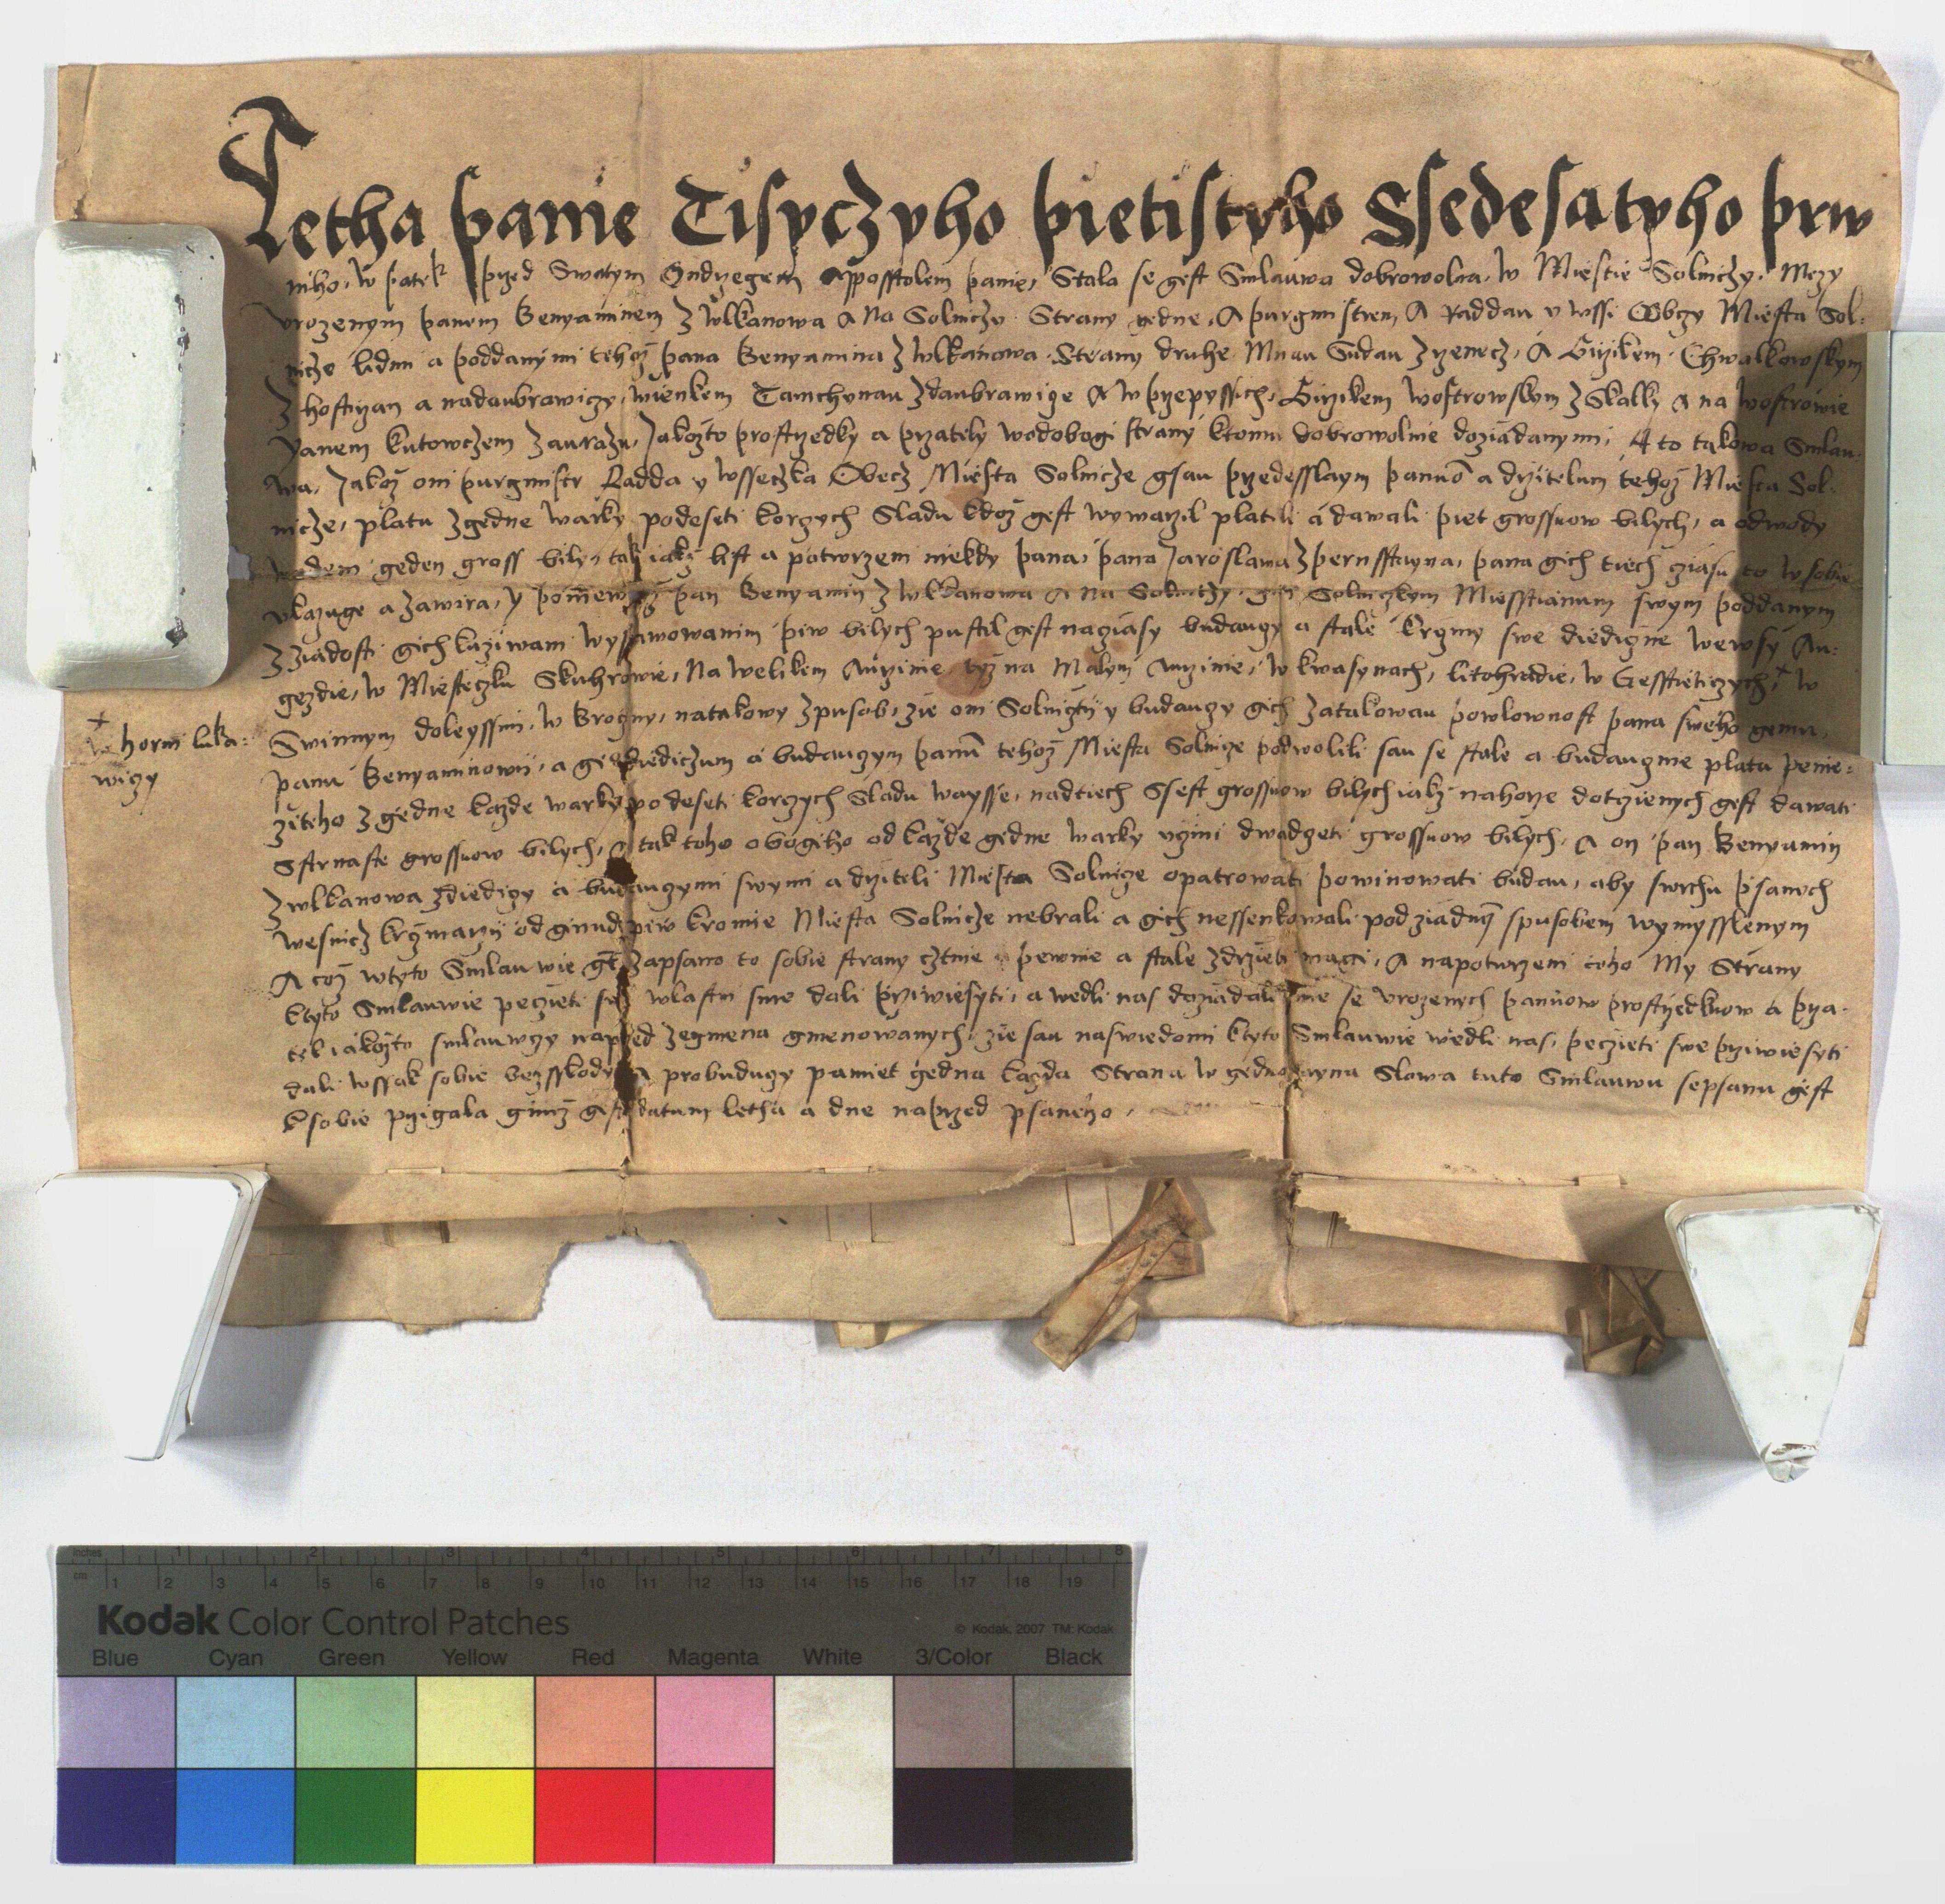 Letha panie Tisyczyho pietistyho Ssedesatyho prw
niho, w patek przed Swatym Ondrzegem Apposstolem panie, Stala se gest Smlauwa dobrowolna, w Miestie Solniczy, Mezy
vrozenym panem Benyaminem z wlkanowa A na Solniczy Strany gedne, A purgmistrem A Raddau y wssi Obczy Miesta Sol:
nicze lidmi a poddanymi tehoz pana Benyamina z wlkanowa Strany druhe Mnau Sudau A Girzikem Chwalkowskym
z hostian a nadaubrawiczy, wienkem Tamchynau z daubrawicze A w przepyssich, Girzikem wostrowskym z Skalky A na wostrowie
Yanem kutowczem z aurazu, Jakozto prostrzedky a przately wobobogi strany ktomu dobrowolnie doziadanymi, A to takowa Smlau
wa, Jakoz oni purgmistr Radda y wsseczka Obecz Miesta Solnicze gsau przedesslaym panuo a drzitelum tehoz Miesta Sol
nicze, platu z gedne warky podeseti korczych Sladu kdoz gest wywarzil platili a dawali piet grossuow bilych, a odwody
geden gross bily, tak iakz list a potwrzeni niekdy pana, pana Jaroslawa z pernsstayna, pana gich tiech cziasu to w sobie
vkazuge a zawira, y pan Benyamin z wlkanowa A na Solniczy, Solniczkym Miesstianum swym poddanym
z ziadosti gich kuziwani wystawowanim piw bilych pustil gest nacziasy budauczy a stale krczmy swe diediczne wewsy Au:
gezdie, w Miesteczku Skuhrowie, Na welikem Aurzinie, tyz na Malym Aurzinie, w kwasynach, litohradie, w Gesstieticzych, + w
+ w horni luka:
wiczy
Swinnym doleyssim, w Broczny, natakowy zpusob, zie oni Solniczti y budauczy gich zatakowau powlownost pana sweho gemu,
panu Benyaminowi, a diediczum a budauczym panum tehoz Miesta Solnicze podwolili sau se stale a budauczne platu penie:
ziteho z gedne kazde warky podeseti korczych Sladu waysse, nadtiech Ssest grossuow bilych iakz nahorze dotczienych gest dawati
Sstrnaste grossuow bilych, a tak toho obogiho od kazde gedne warky vczini dwadczeti grossuow bilych, A on pan Benyamin
z wlkanowa z diediczy a budauczymi swymi a drziteli Miesta Solnicze opatrowati powinowati budau, aby swrchu psanych
wesnicz krczmarzy odginud piw kromie Miesta Solnicze nebrali a gich nessenkowali pod ziadnym spusobem wymysslenym
A coz wtyto Smlauwie gest zapsano to sobie strany cztnie a pewnie a stale zdrzieti magi, A napotwrzeni toho My Strany
ktyto Smlauwie peczieti swe wlastni sme dali prziwiesyti, a wedli nas doziadali sme se vrozenych panuow prostrzedkuow a prza:
tel iakozto smluwczy naprzed zegmena gmenowanych, zie sau naswiedomi ktyto Smlauwie wedli nas, peczieti swe prziwiesyti
dali wssak sobie bezsskody, A probuduczy pamiet gedna kazda Strana w gednostaynu Slowa tuto Smlauwu sepsanu gest
ksobie przigala gimz gest datum letha a dne naprzed psaneho,
inches 1 2 3 4 5 6 7 8
cm 1 2 3 4 5 6 7 8 9 10 11 12 13 14 15 16 17 18 19
Kodak Color Control Patches © Kodak, 2007 TM: Kodak
Blue Cyan Green Yellow Red Magenta White 3/Color Black